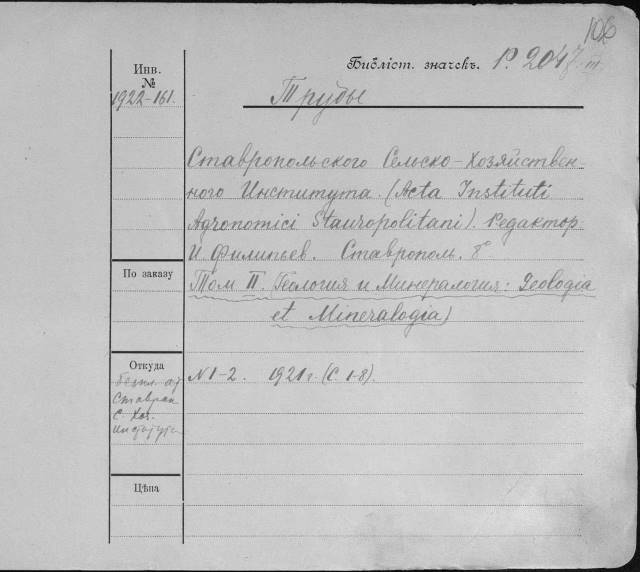 Библіот. значекъ. Р. 2047
Инв.
№
1922-161.
Труды
Ставропольского Сельско-Хозяйствен-
ного Института. (Acta Instituti
Agronomici Stauropolitani). Редактор
И. Филипьев. Ставрополь. 8°
По заказу
Том II. (Геология и Минералогия: Geologia
et Mineralogia)
Откуда
N 1-2. 1921 г. (С. 1-8).
Безпл. от
Ставроп
С. Хоз.
Института
Цѣна